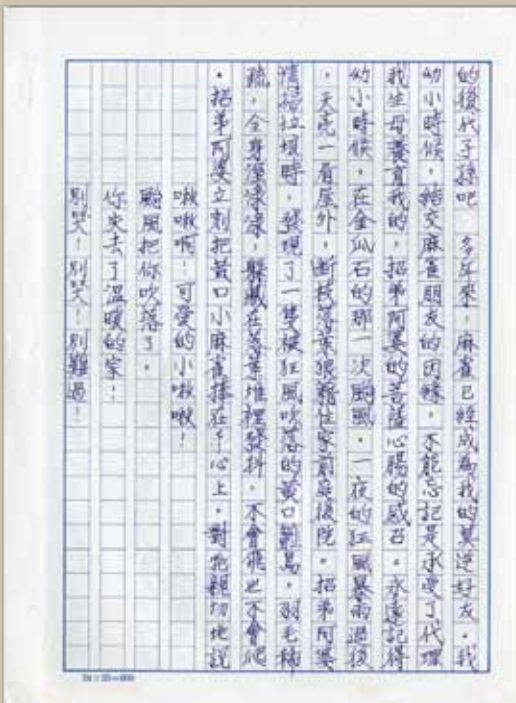 的後代子孫吧 多年來，麻雀已經成為我的莫逆好友。我
幼小時候，結交麻雀朋友的因緣，不能忘記是承受了代理
我生母養育我的，招弟阿婆的菩薩心腸的感召。永遠記得
幼小時候，在金瓜石的那一次颱風，一夜的狂風暴雨過後
，天亮一看屋外，斷枝落葉狼藉住家前庭後院。招弟阿婆
清掃垃圾時，發現了一隻被狂風吹落的黃口雛鳥，羽毛稀
疏，全身溼漉漉，躲藏在落葉堆裡發抖。不會飛也不會爬
。招弟阿婆立刻把黃口小麻雀捧在手心上，對牠親切地說
啾啾啊！可愛的小啾啾！
颱風把你吹落了。
你失去了溫暖的家！
別哭！別哭！別難過！